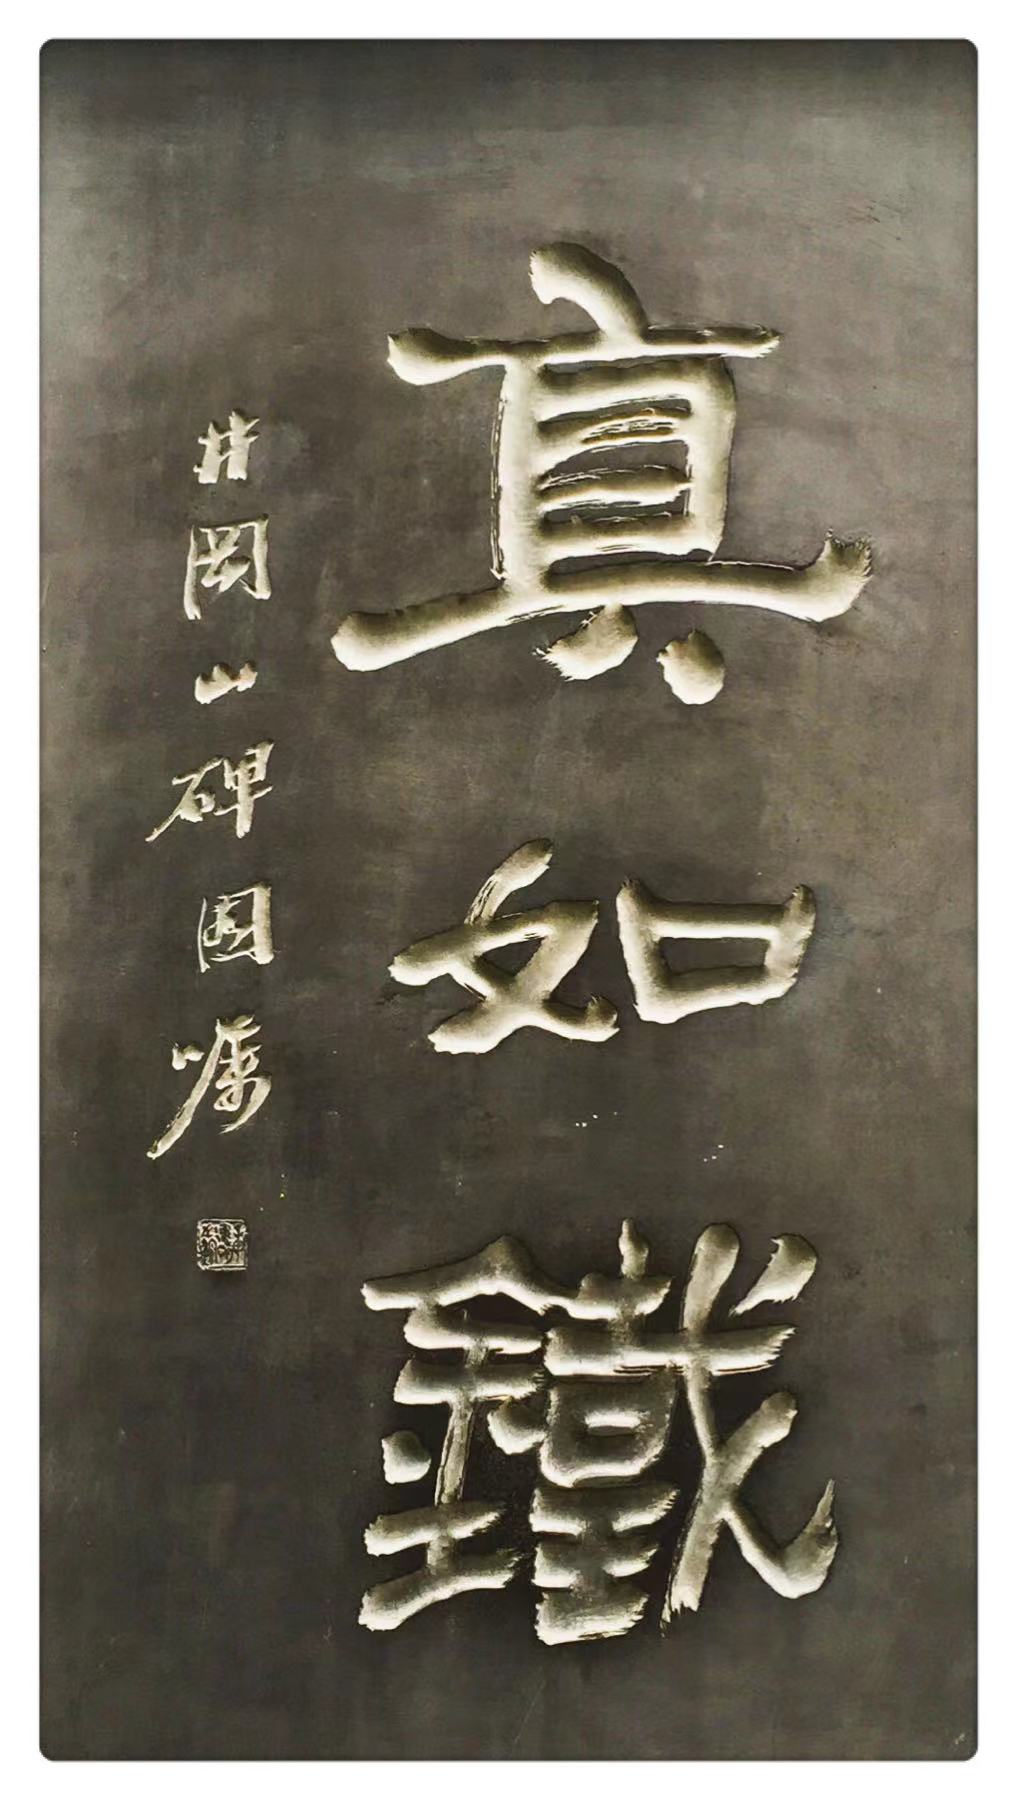 真如鐵
井岡山碑園囑